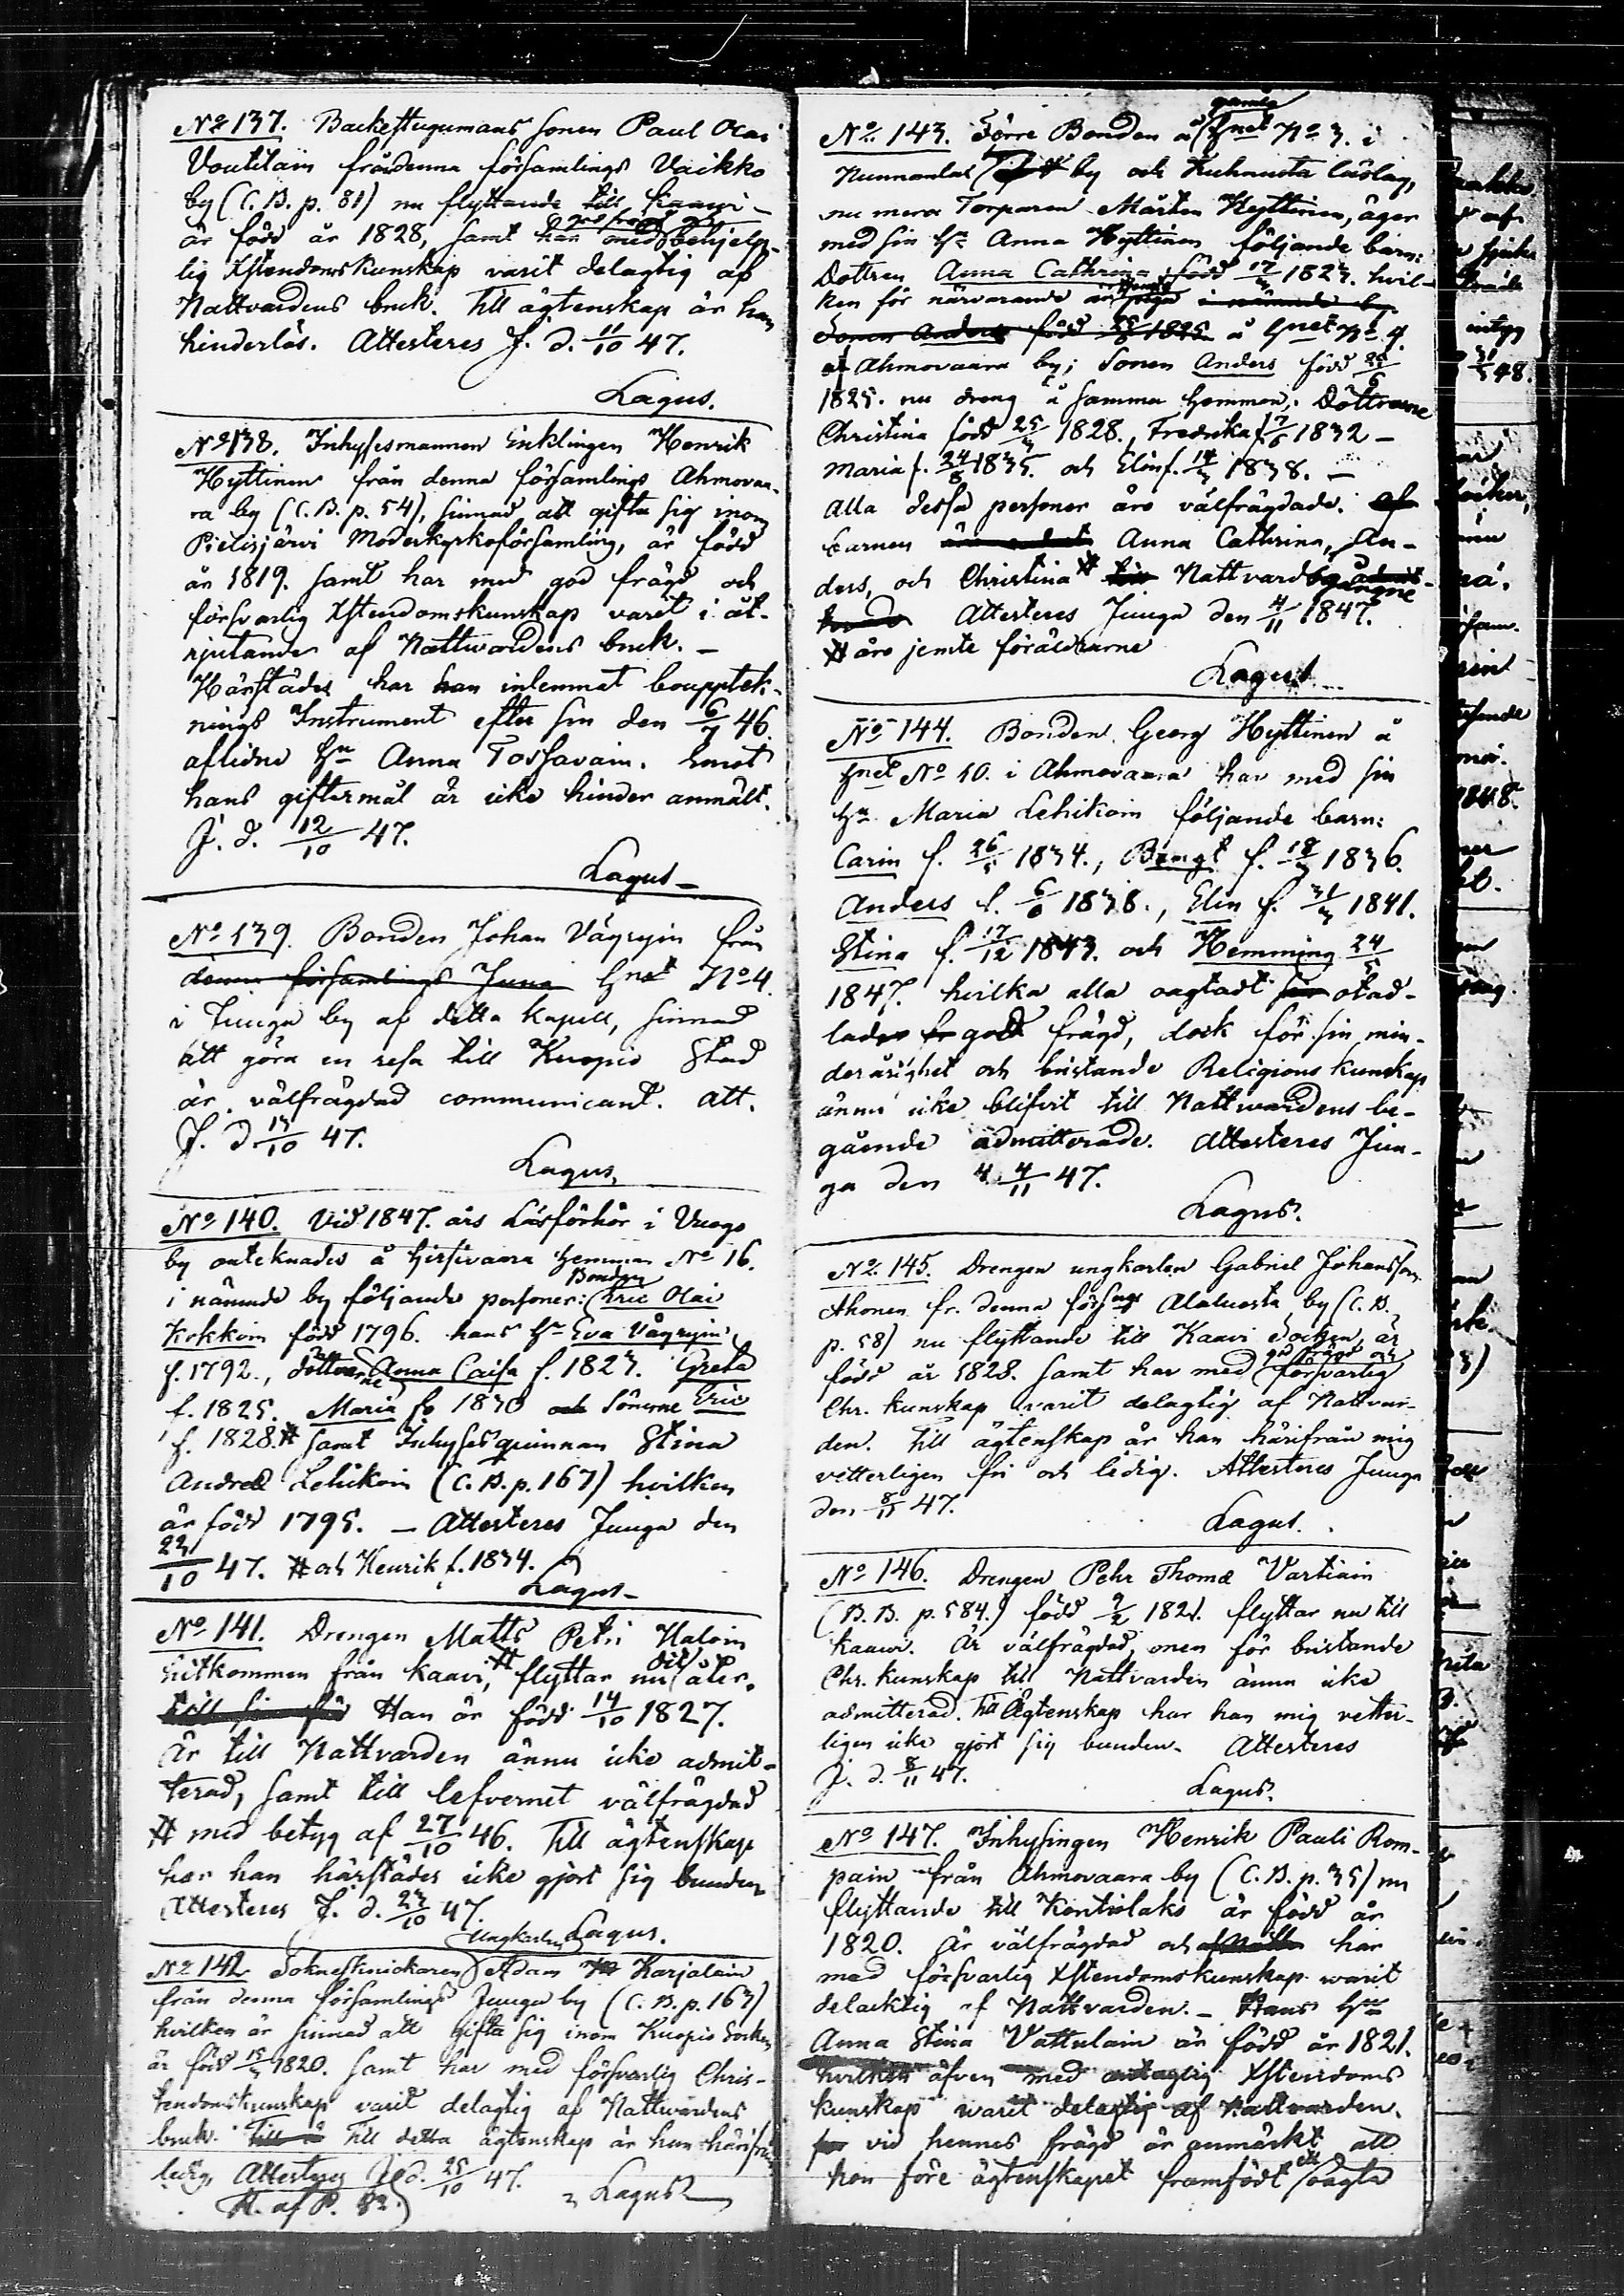 No 137. Backstugumans sonen Paul Olai
Voutilain från denna församlings Vaikko
by (C. B. p. 81) nu flyttande till Kaavi
är född år 1828, samt har med god frägd och behjelp-
lig Xstendomskunskap varit delagtig af
Nattvardens bruk. Till ägtenskap är han
hinderlös. Attesteres J. d. 11/10 47.
Lagus.
No 138. Inhysesmannen Enklingen Henrik
Hyttinen från denna församlings Ahmovaa-
ra by (C. B. p. 54), sinnad att gifta sig inom
Pielisjärvi Moderkyrkoförsamling, är född
år 1819. samt har med god frägd och
försvarlig Xstendomskunskap varit i åt-
njutande af Nattwardens bruk. —
Härstädes har han inlemnat bouppteck-
nings Instrument efter sin den 6/7 46.
aflidne Hu Anna Tossavain. Emot
hans giftermål är icke hinder anmält.
J. d. 12/10 47.
Lagus —
No 139. Bonden Johan Vägryin från
denna församlings Juua Hnet No 4.
i Juuga by af detta Kapell, sinnad
att göra en resa till Kuopio Stad
är välfrägdad communicant. Att.
J. d. 13/10 47.
Lagus.
No 140. Vid 1847. års Läsförhör i Vuogo
by anteknades å Hirsivaara Hemman No 16.
i nämnde by följande personer: Bonden Eric Olai
Kokkoin född 1796. hans Hu Eva Vägryin
f. 1792., döttrarne Anna Caisa f. 1823. Greta
f. 1825. Maria f. 1830 och Sönerne Eric
f. 1828. # samt Inhysesquinnan Stina
Andreæ Lehikoin (C. B. p. 167) hvilken
är född 1795. — Attesteres Juuga den
23/10 47. # och Henrik f. 1834.
Lagus —
No 141. Drengen Matts Petri Haloin
hitkommen från Kaavi, # flyttar nu dit åter.
till sin föd Han är född 14/10 1827.
Är till Nattvarden ännu icke admit-
terad, samt till lefvernet välfrägdad
# med betyg af 27/10 46. Till ägtenskap
har han härstädes icke gjort sig bunden
Attesteres J. d. 23/10 47.
Lagus.
No 142 Soknesknickaren Ungkarlen Adam Karjalain
från denna församlings Juuga by (C. B. p. 163)
hvilken är sinnad att gifta sig inom Kuopio Socken
är född 15/3 1820. samt har med försvarlig Chris-
tendomskunskap varit delagtig af Nattwardens
bruk. Till detta ägtenskap är han härifrån
ledig, Attesteres J. d. 25/10 47.
Lagus
R. af P. 82.
No 143. Förre Bonden å gamla Hnet No 3. i
Nunnanlas by och Kuhnusta läslag,
nu mera Torparen Mårten Hyttinen, äger
med sin Hu Anna Hyttinen följande barn:
Dottren Anna Cathrina född 17/3 1823. hvil-
ken för närvarande är piga i nämnde by.
Sonen Anders född 25/6 1825 å Hnet No 4.
af Ahmovaara by; Sonen Anders född 25/6
1825. nu dreng å samma Hemman. Döttrarne
Christina född 25/3 1828., Fredrika f. 7/6 1832 —
Maria f. 24/8 1835. och Elin f. 14/3 1838. —
alla dessa personer äro välfrägdade. af
barnen Anna Cathrina, An-
ders, och Christina # Nattvardsgångne
Attesteres Juuga den 4/11 1847.
# äro jemte föräldrarne
Lagus
No 144. Bonden Georg Hyttinen å
Hnet No 10. i Ahmovaara har med sin
Hu Maria Lehikoin följande barn:
Carin f. 26/5 1834., Bengt f. 18/3 1836.
Anders f. 6/6 1838., Elin f. 31/3 1841.
Stina f. 17/12 1843. och Hemming 24/5
1847. hvilka alla oagtadt otad-
lade godt frägd, dock för sin min-
derårighet och bristande Religions kunskap
ännu icke blifvit till Nattwardens be-
gående admitterade. Attesteres Juu-
ga den 4/11 47.
Lagus.
No 145. Drengen ungkarlen Gabriel Johansson
Ahonen fr. denna förs:ngs Alaluosta by (C. B.
p. 58) nu flyttande till Kaavi Socken, är
född år 1828. samt har med god frägd och försvarlig
Chr. kunskap varit delagtig af Nattvar-
den. Till ägtenskap är han härifrån mig
vetterligen fri och ledig. Attesteres Juuga
den 8/11 47.
Lagus.
No 146. Drengen Pehr Thomæ Vartiain
(B. B. p. 584.) född 9/2 1821. flyttar nu till
Kaavi. Är välfrägdad, men för bristande
Chr. kunskap till Nattvarden ännu icke
admitterad. Till Ägtenskap har han mig vetter-
ligen icke gjort sig bunden. Attesteres
J. d. 8/11 47.
Lagus.
No 147. Inhysingen Henrik Pauli Rom-
pain från Ahmovaara by (C. B. p. 35) nu
flyttande till Kontiolaks är född år
1820. Är välfrägdad och har
med försvarlig Xstendomskunskap warit
delacktig af Nattvarden. — Hans Hu
Anna Stina Vattulain är född år 1821.
hvilken äfven med antaglig Xstendoms
kunskap warit delagtig af Nattvarden.
vid hennes frägd är anmärkt att
hon före ägtenskapet framfödt ett oägta